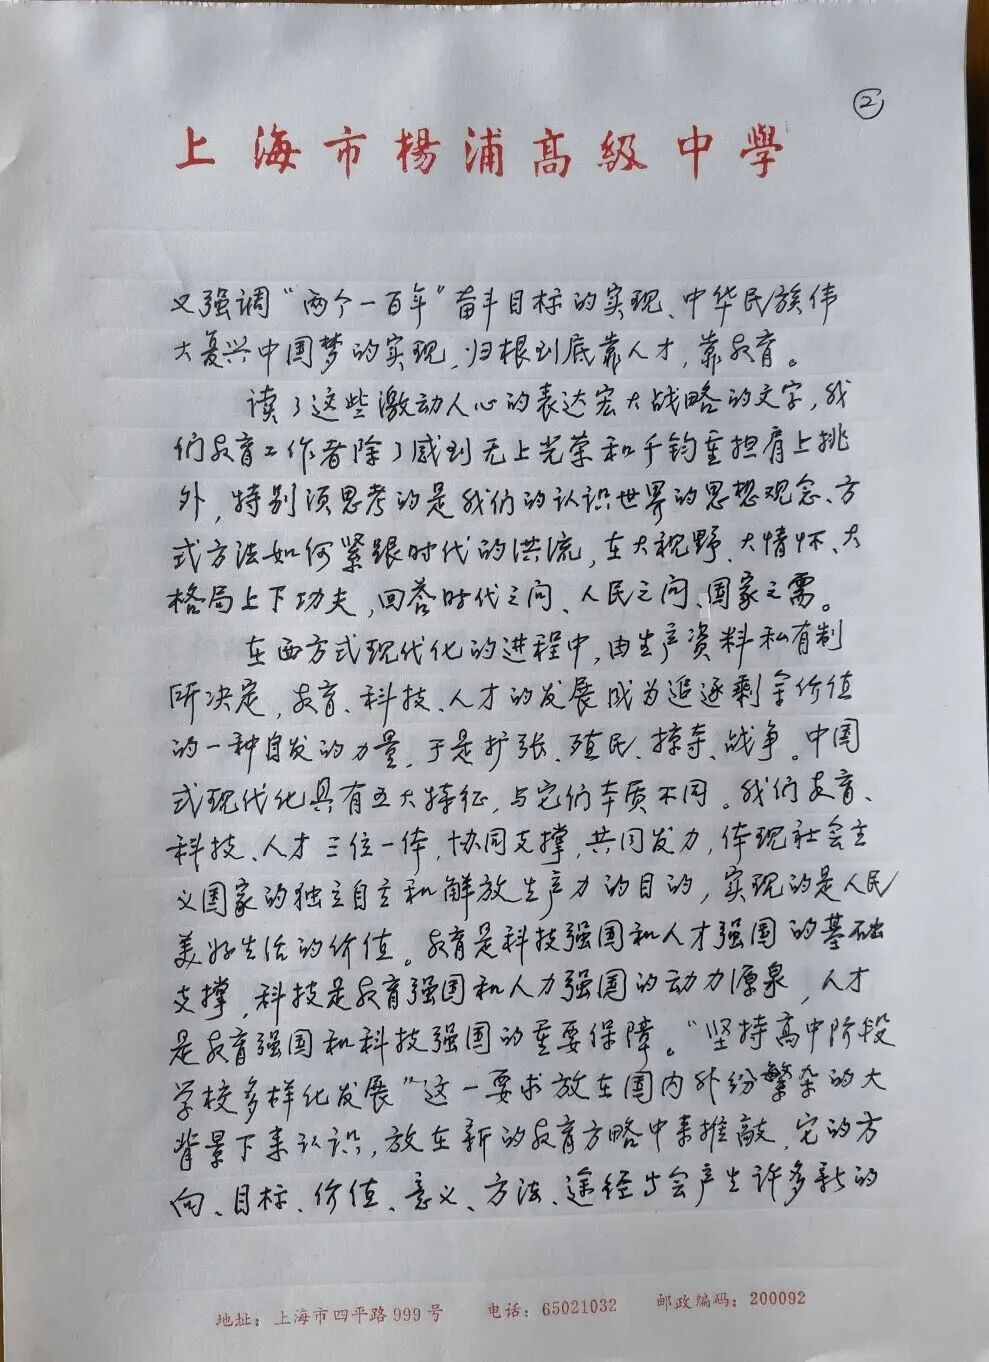 ②
上海市楊浦高級中學
又强调“两个一百年”奋斗目标的实现、中华民族伟
大复兴中国梦的实现，归根到底靠人才，靠教育。
读了这些激动人心的表达宏大战略的文字，我
们教育工作者除了感到无上光荣和千钧重担肩上挑
外，特别须思考的是我们的认识世界的思想观念、方
式方法如何紧跟时代的洪流，在大视野、大情怀、大
格局上下功夫，回答时代之问、人民之问、国家之需。
在西方式现代化的进程中，由生产资料私有制
所决定，教育、科技、人才的发展成为追逐剩余价值
的一种自发的力量，于是扩张、殖民、掠夺、战争。中国
式现代化具有五大特征，与它们本质不同。我们教育、
科技、人才三位一体，协同支撑，共同发力，体现社会主
义国家的独立自主和解放生产力的目的，实现的是人民
美好生活的价值。教育是科技强国和人才强国的基础
支撑，科技是教育强国和人力强国的动力源泉，人才
是教育强国和科技强国的重要保障。“坚持高中阶段
学校多样化发展”这一要求放在国内外纷繁杂的大
背景下来认识，放在新的教育方略中来推敲，它的方
向、目标、价值、意义、方法、途径与会产生许多新的
地址：上海市四平路999号 电话：65021032 邮政编码：200092